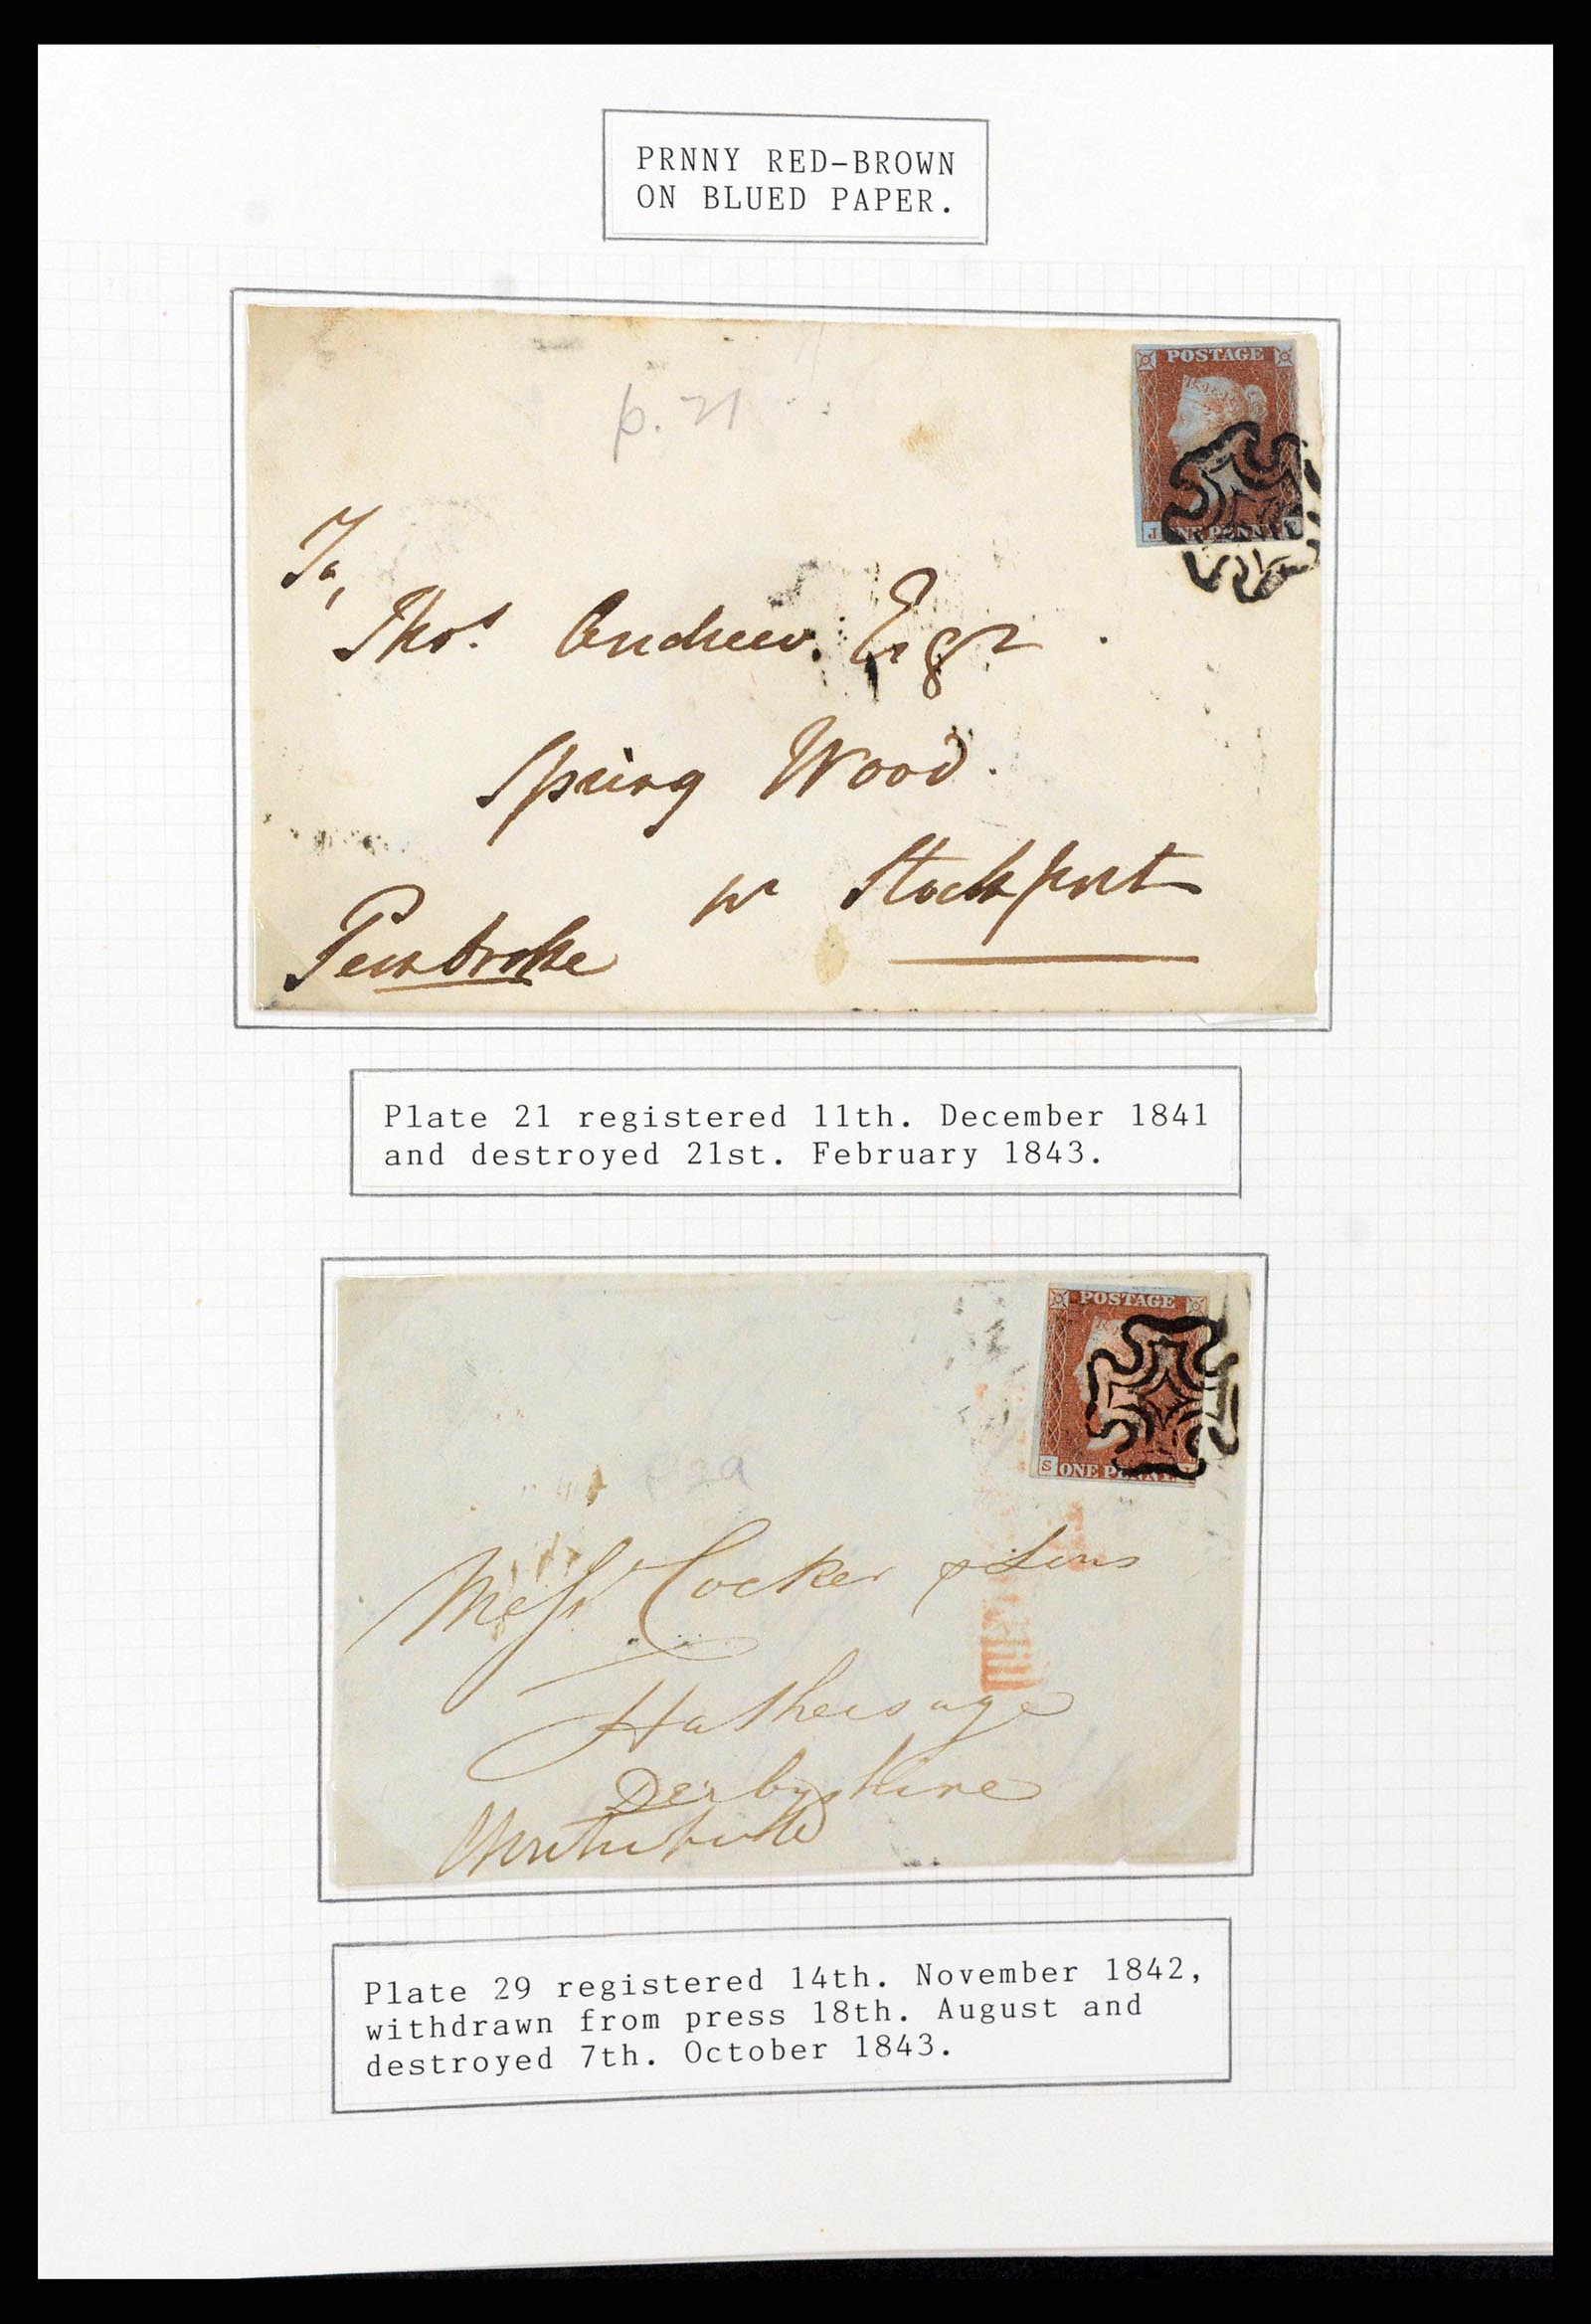 PRNNY RED-BROWN
ON BLUED PAPER.
POSTAGE
J ONE PENNY
p. 21
To,
Thos. Andrew. Esqr.
Spring Wood.
nr Stockport
Pembroke
Plate 21 registered 11th. December 1841
and destroyed 21st. February 1843.
POSTAGE
S ONE PENNY
P 29
Messrs Cocker & Sons
Hathersage
Derbyshire
Plate 29 registered 14th. November 1842,
withdrawn from press 18th. August and
destroyed 7th. October 1843.